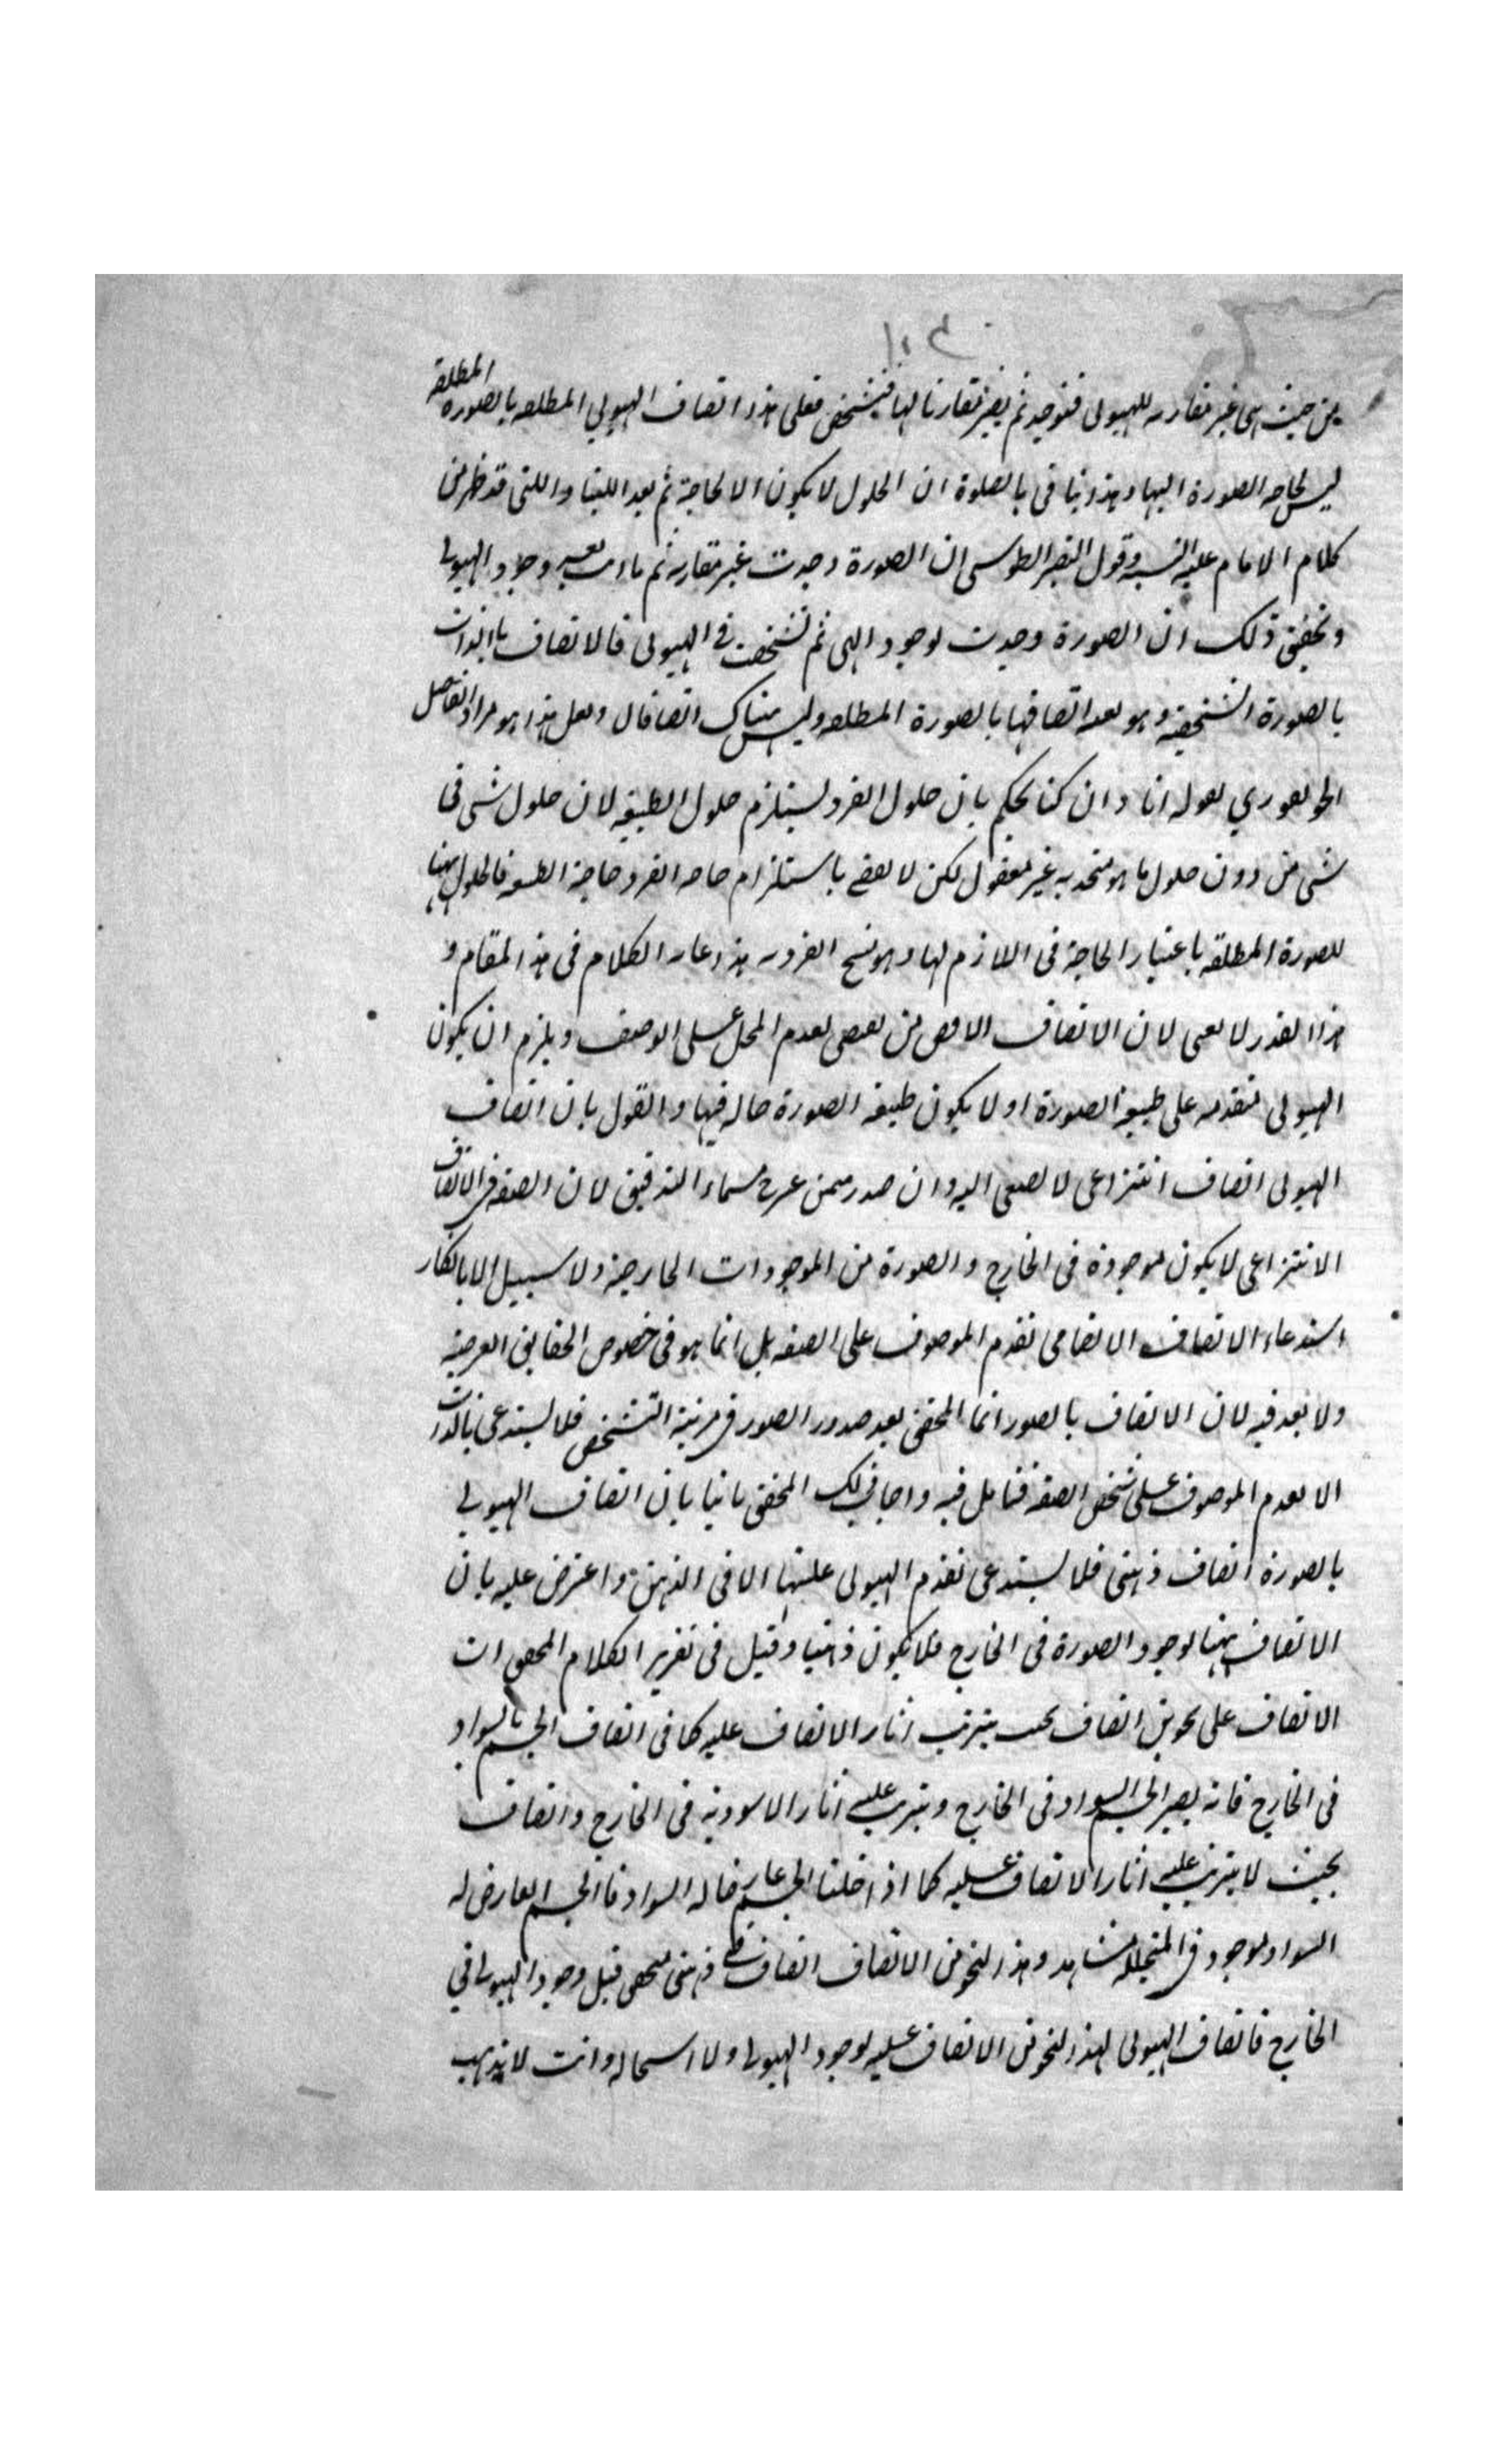 من حيث هي غير مقارنه للهيولى فتوجد ثم يصير مقارنا لها فيتشخص فعلى هذا اتصاف الهيولي المطلقه بالصورة المطلقة
ليس لحاجه الصورة اليها وهذا ينافى ان الحلول لا يكون الا لحاجة ثم بعد اللتيا واللتى قد ظهر من
كلام الامام عليه وقول النصير الطوسى ان الصورة وجدت غير مقارنه ثم وجود الهيولى
وتحقيق ذلك ان الصورة وجدت لوجود الهى ثم تشخصت فى الهيولى فالاتصاف بالذات
بالصورة الشخصية وهو بعد اتصافها بالصورة المطلقه وليس هناك اتصافان ولعل هذا هو مراد الفاضل
الجونفورى بقوله انا وان كنا نحكم بان حلول الفرد يستلزم حلول الطبيعه لان حلول شى فى
شى من دون حلول ما هو متحد به غير معقول لكن لا باستلزام حاجه الفرد حاجة الطبيعه فالحلول ههنا
للصورة المطلقه باعتبار الحاجة فى اللازم لها وهو الفرديه هذا غايه الكلام فى هذا المقام و
هذا القدر لا لان الاتصاف تقدم المحل على الوصف ويلزم ان يكون
الهيولى متقدمه على طبيعة الصورة او لا يكون طبيعه الصورة حاله فيها والقول بان اتصاف
الهيولى اتصاف انتزاعى لا يصغى اليه وان صدر ممن عرج سماء التدقيق لان الصفه فى الاتصاف
الانتزاعى لا يكون موجودة فى الخارج والصورة من الموجودات الخارجية ولا سبيل الا بانكار
استدعاء الاتصاف الانضمامى تقدم الموصوف على الصفه بل انما هو فى خصوص الحقايق العرضية
ولا بعد فيه لان الاتصاف بالصور انما المحقق بعد صدور الصور فى مرتبة التشخص فلا يستدعى بالذات
الا تقدم الموصوف على تشخص الصفه فتامل فيه واجاب ذلك المحقق ثانيا بان اتصاف الهيولى
بالصورة اتصاف ذهنى فلا يستدعى تقدم الهيولى عليها الا فى الذهن واعترض عليه بان
الاتصاف ههنا لوجود الصورة فى الخارج فلا يكون ذهنيا وقيل فى تقرير الكلام المحقق ان
الاتصاف على نحوين اتصاف بحيث يترتب اثار الاتصاف عليه كما فى اتصاف الجسم بالسواد
فى الخارج فانه يصير الجسم اسود فى الخارج ويترتب عليه اثار الاسودية فى الخارج واتصاف
بحيث لا يترتب عليه اثار الاتصاف عليه كما اذا خلنا الجسم السواد فالجسم العارض له
السواد موجود فى المتخيلة وهذا النحو من الاتصاف اتصاف ذهنى قبل وجود الهيولى فى
الخارج فاتصاف الهيولى لهذا النحو من الاتصاف عليه لوجود الهيولى ولا استحاله وانت لا يذهب